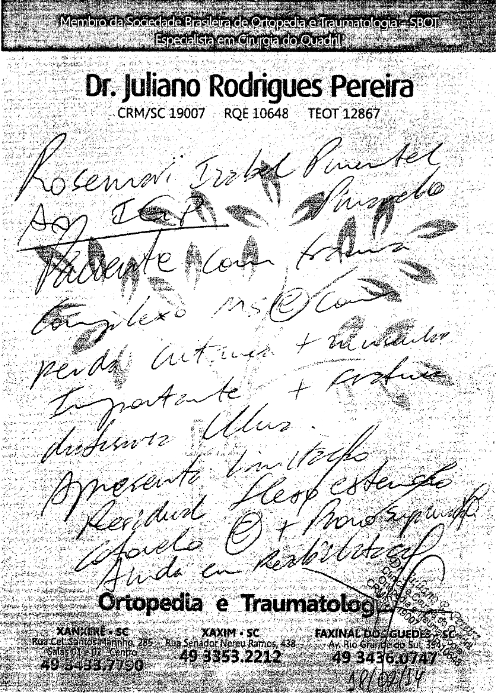 Membro da Sociedade Brasileira de Ortopedia e Traumatologia - SBOT
Especialista em Cirurgia do Quadril
Dr. Juliano Rodrigues Pereira
CRM/SC 19007 RQE 10648 TEOT 12867
Rosemari Izabel Pimentel
Ao IGP
Paciente com trauma
Complexo MS (E) com
perda cutanea + muscular
Importante + fratura
diafisaria Ulna.
Apresenta limitação
Residual flexo extensão
Cotovelo (E) + Prono Supinação
Ainda em Reabilitação
Ortopedia e Traumatologi
XANXERÊ - SC
Rua Cel. Santos Marinho, 285
Centro
49 3433.7790
XAXIM - SC
Rua Senador Nereu Ramos, 438
49 3353.2212
FAXINAL DOS GUEDES - SC
Av. Rio Grande do Sul, 394
49 3436.0747
18/02/14